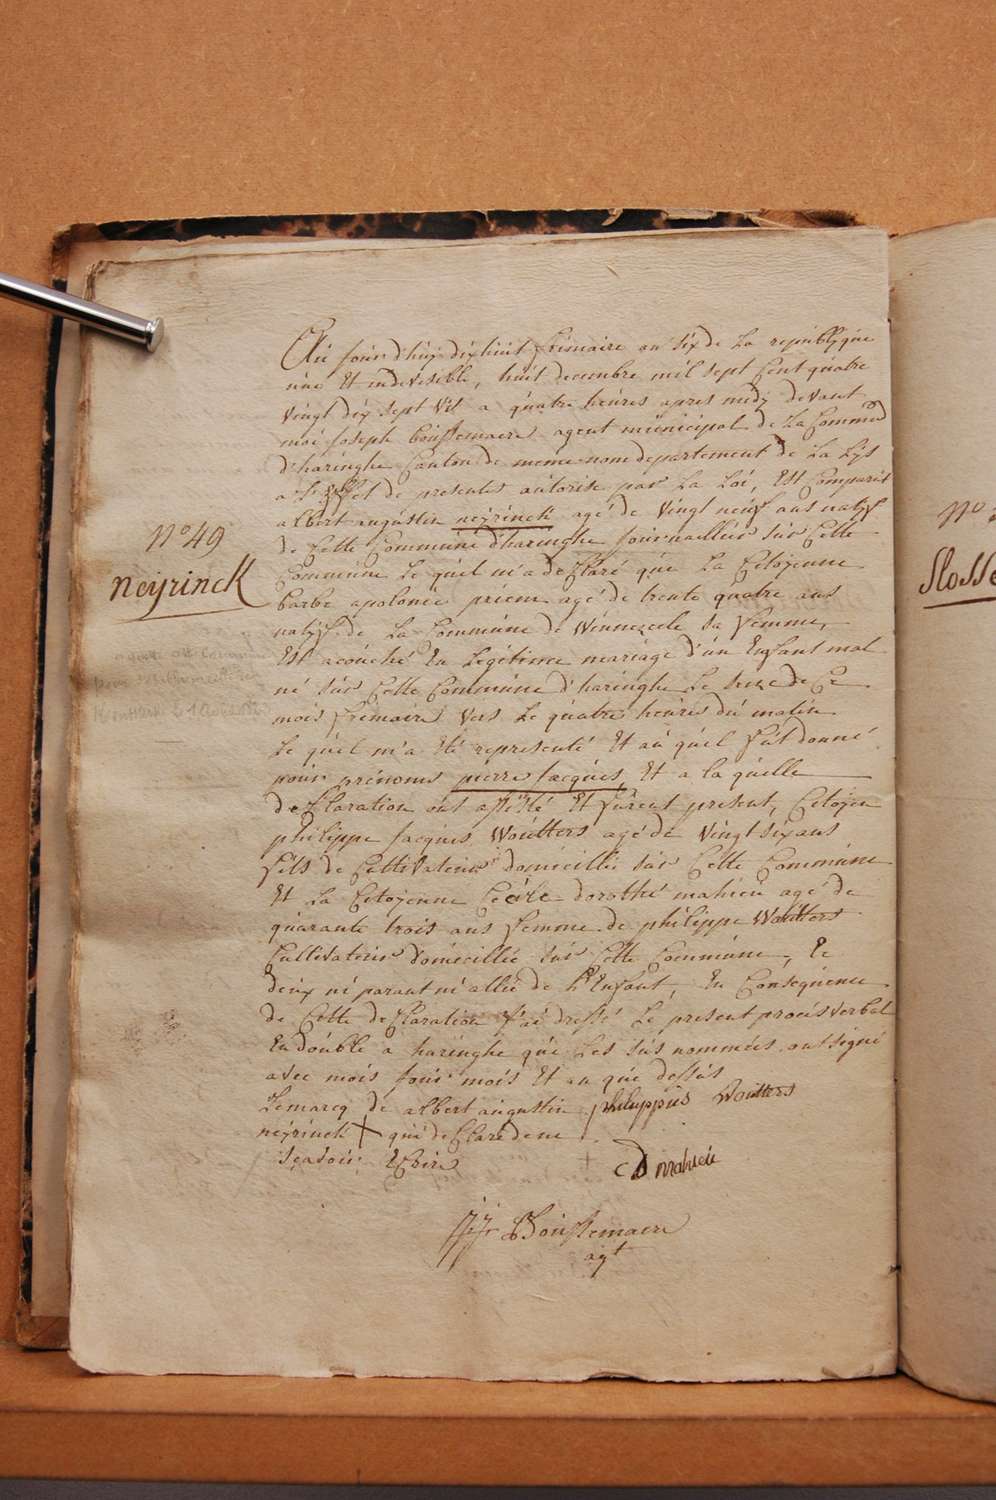 Au jour d'huy dixhuit frimaire an six de La republique
une Et indevisible, huit decembre mil sept Cent quatre
vingt dix sept VSt a quatre heures apres midy devant
moi Joseph Boustemaere agent municipal de La Commune
d'haringhe Canton de meme nom departement de La Lijs
a L'effet de presentes autorise par La Loi, Est Comparût
albert augustin neyrinck agé de vingt neuf ans natif
de Cette Commune d'haringhe journaillier sur Cette
Commune Le quel m'a deClaré que La Citoyenne
barbe apolonie priem agé de trente quatre ans
natif de La Commune de Winnezeele sa femme,
Est acouché En Legitime mariage d'un Enfant mal
né sur Cette Commune d'haringhe Le seize de Ce
mois frimaire vers Le quatre heures du matin
Le quel m'a Eté representé Et au quel fut donné
pour prénoms pierre Jacques, Et a la quelle
deClaration ont assisté Et furent present, Citoyen
philippe Jacques Woutters agé de vingt six ans
fils de Cultivateur domicillié sur Cette Commune
Et La Citoyenne Cecile dorothé mahieu agé de
quarante trois ans femme de philippe Woutters
Cultivateur domicillié sur Cette Commune, Le
deux ni parant ni allié de L'Enfant, En Consequence
de Cette deClaration j'ai dressé Le present procés verbal
En double a haringhe que Les sus nommées ont signé
avec mois jour mois Et an que dessus
Lemarcq de albert augustin philuppus Woutters
neyrinck + qui deClare de ne
sçavoir Ecrire
CD mahieu
J:J: Boustemaere
agt
N° 49
neyrinck
N°
Slosse